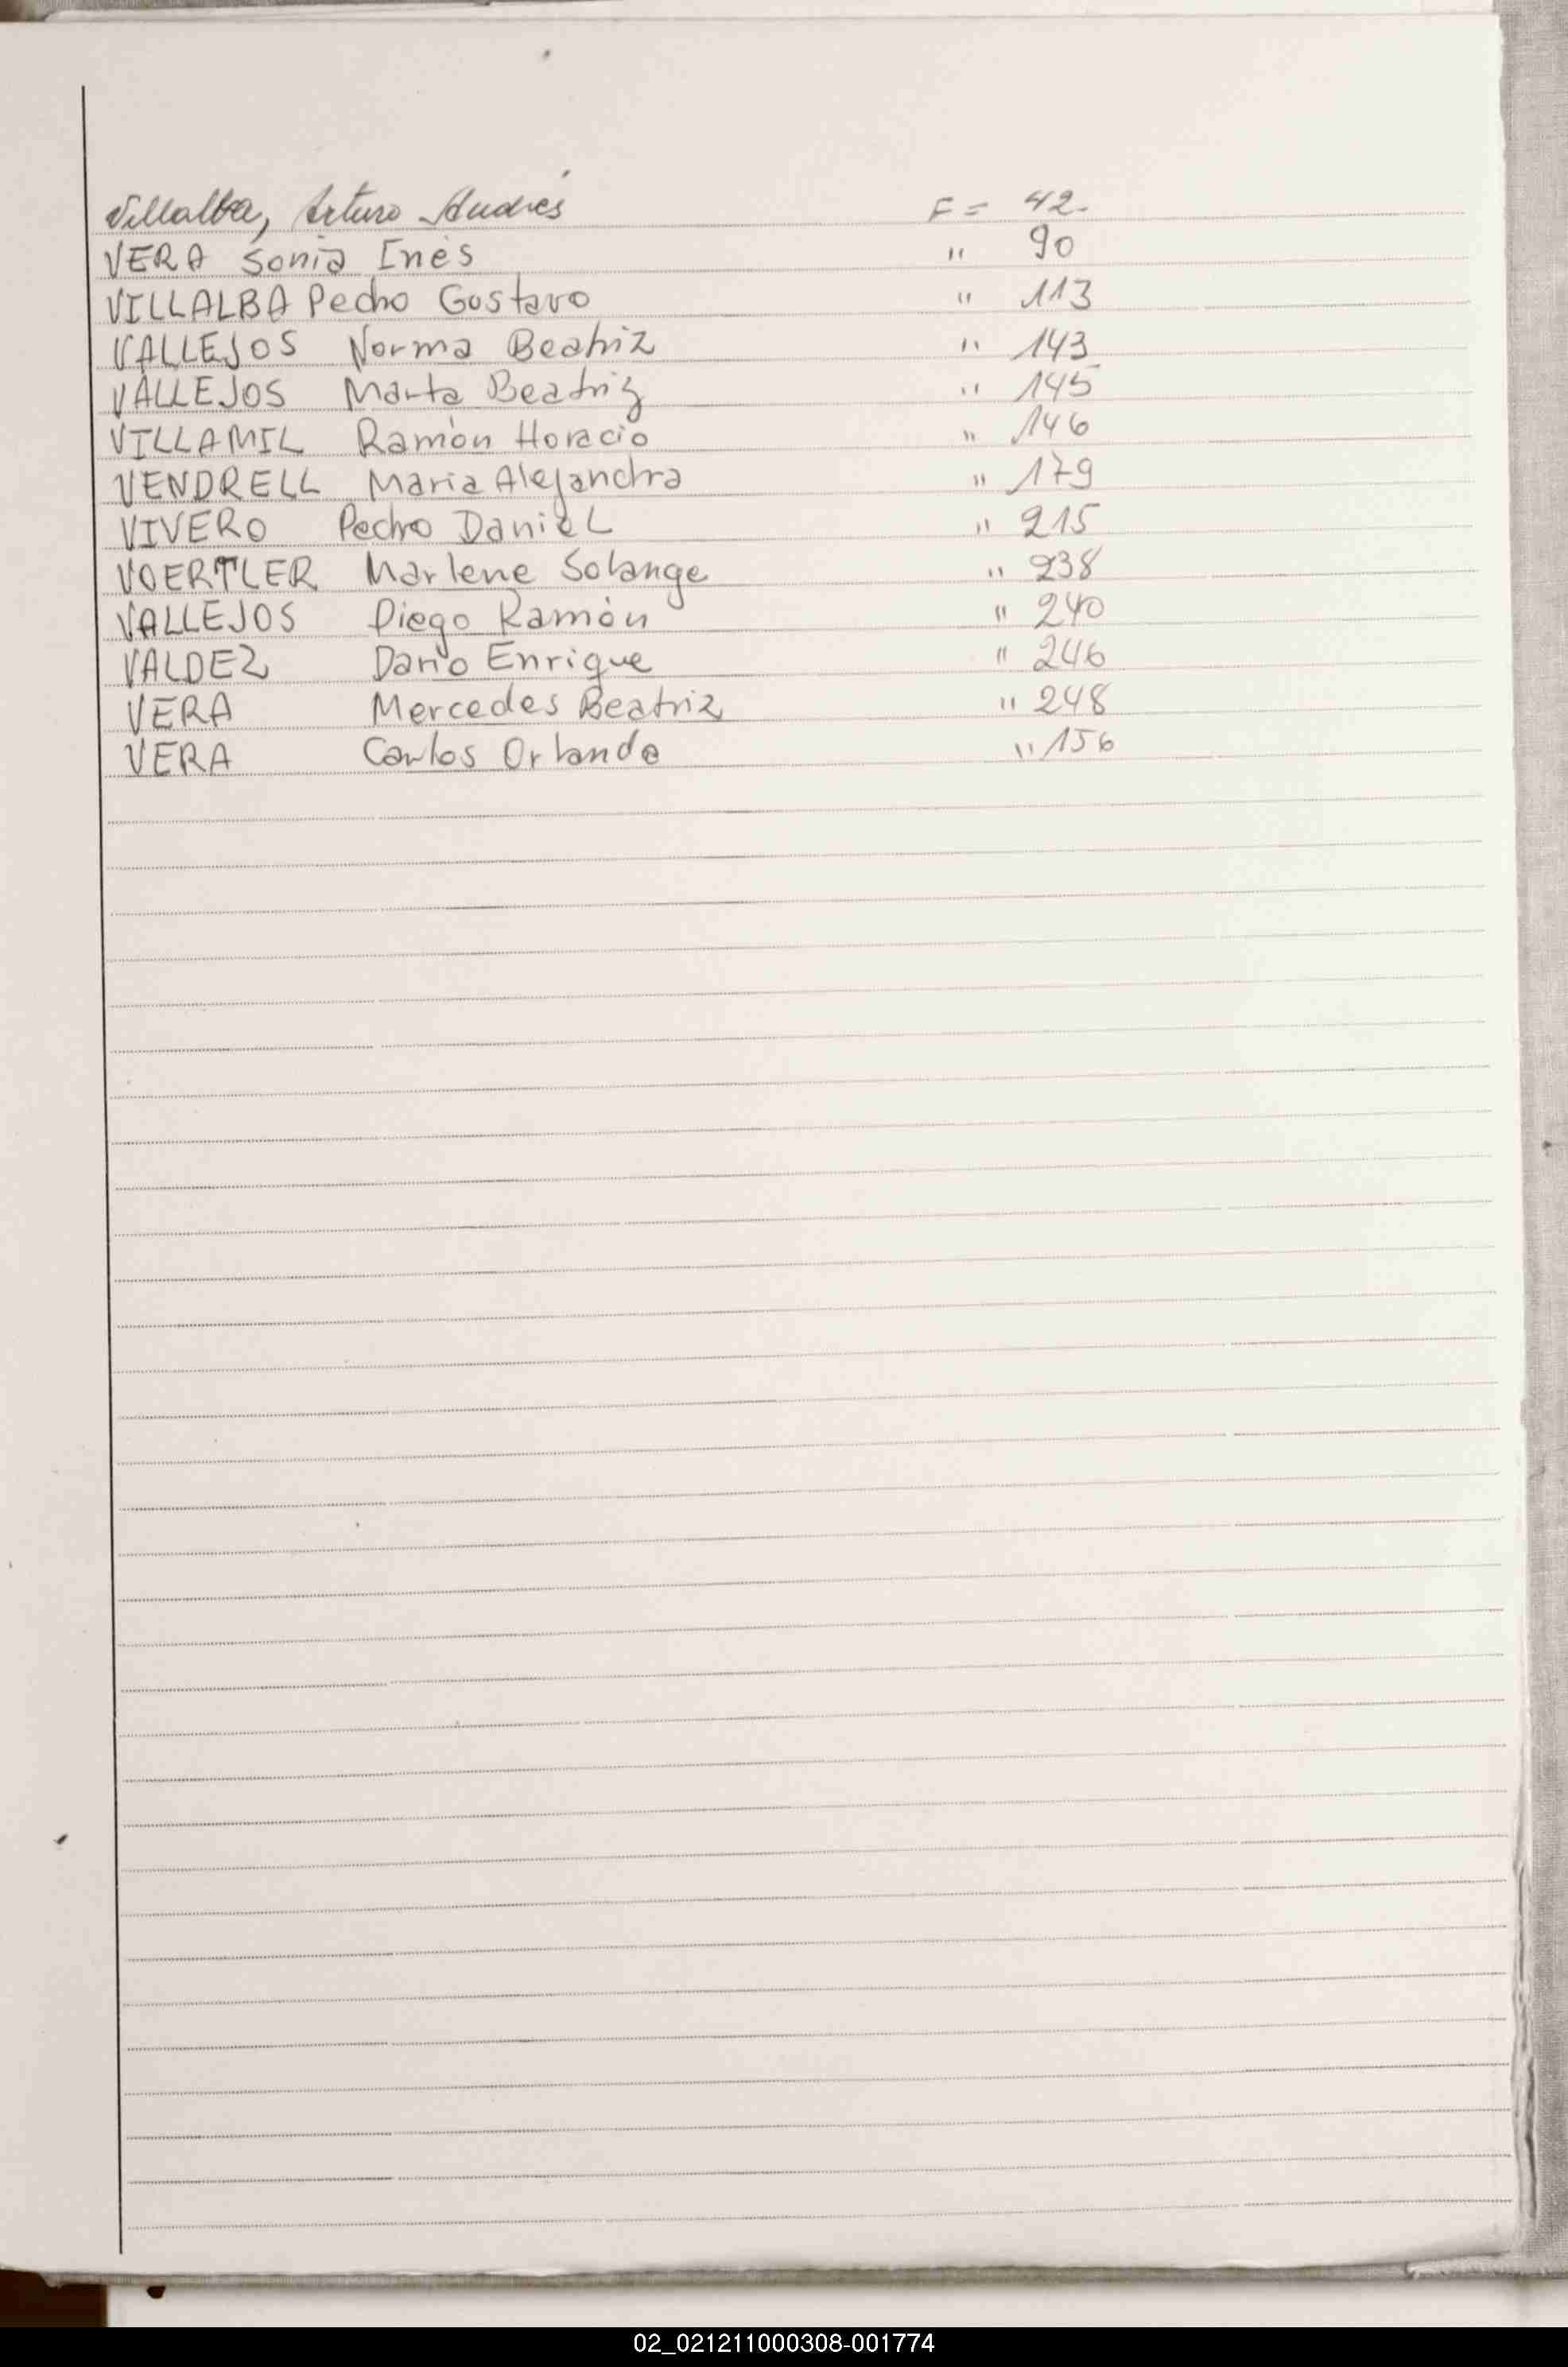 Villalba, Arturo Andrés F = 42.
VERA Sonia Inés " 90
VILLALBA Pedro Gustavo " 113
VALLEJOS Norma Beatriz " 143
VALLEJOS Marta Beatriz " 145
VILLAMIL Ramón Horacio " 146
VENDRELL Maria Alejandra " 179
VIVERO Pedro Daniel " 215
VOERTLER Marlene Solange " 238
VALLEJOS Diego Ramón " 240
VALDEZ Darío Enrique " 246
VERA Mercedes Beatriz " 248
VERA Carlos Orlando " 156
02_021211000308-001774